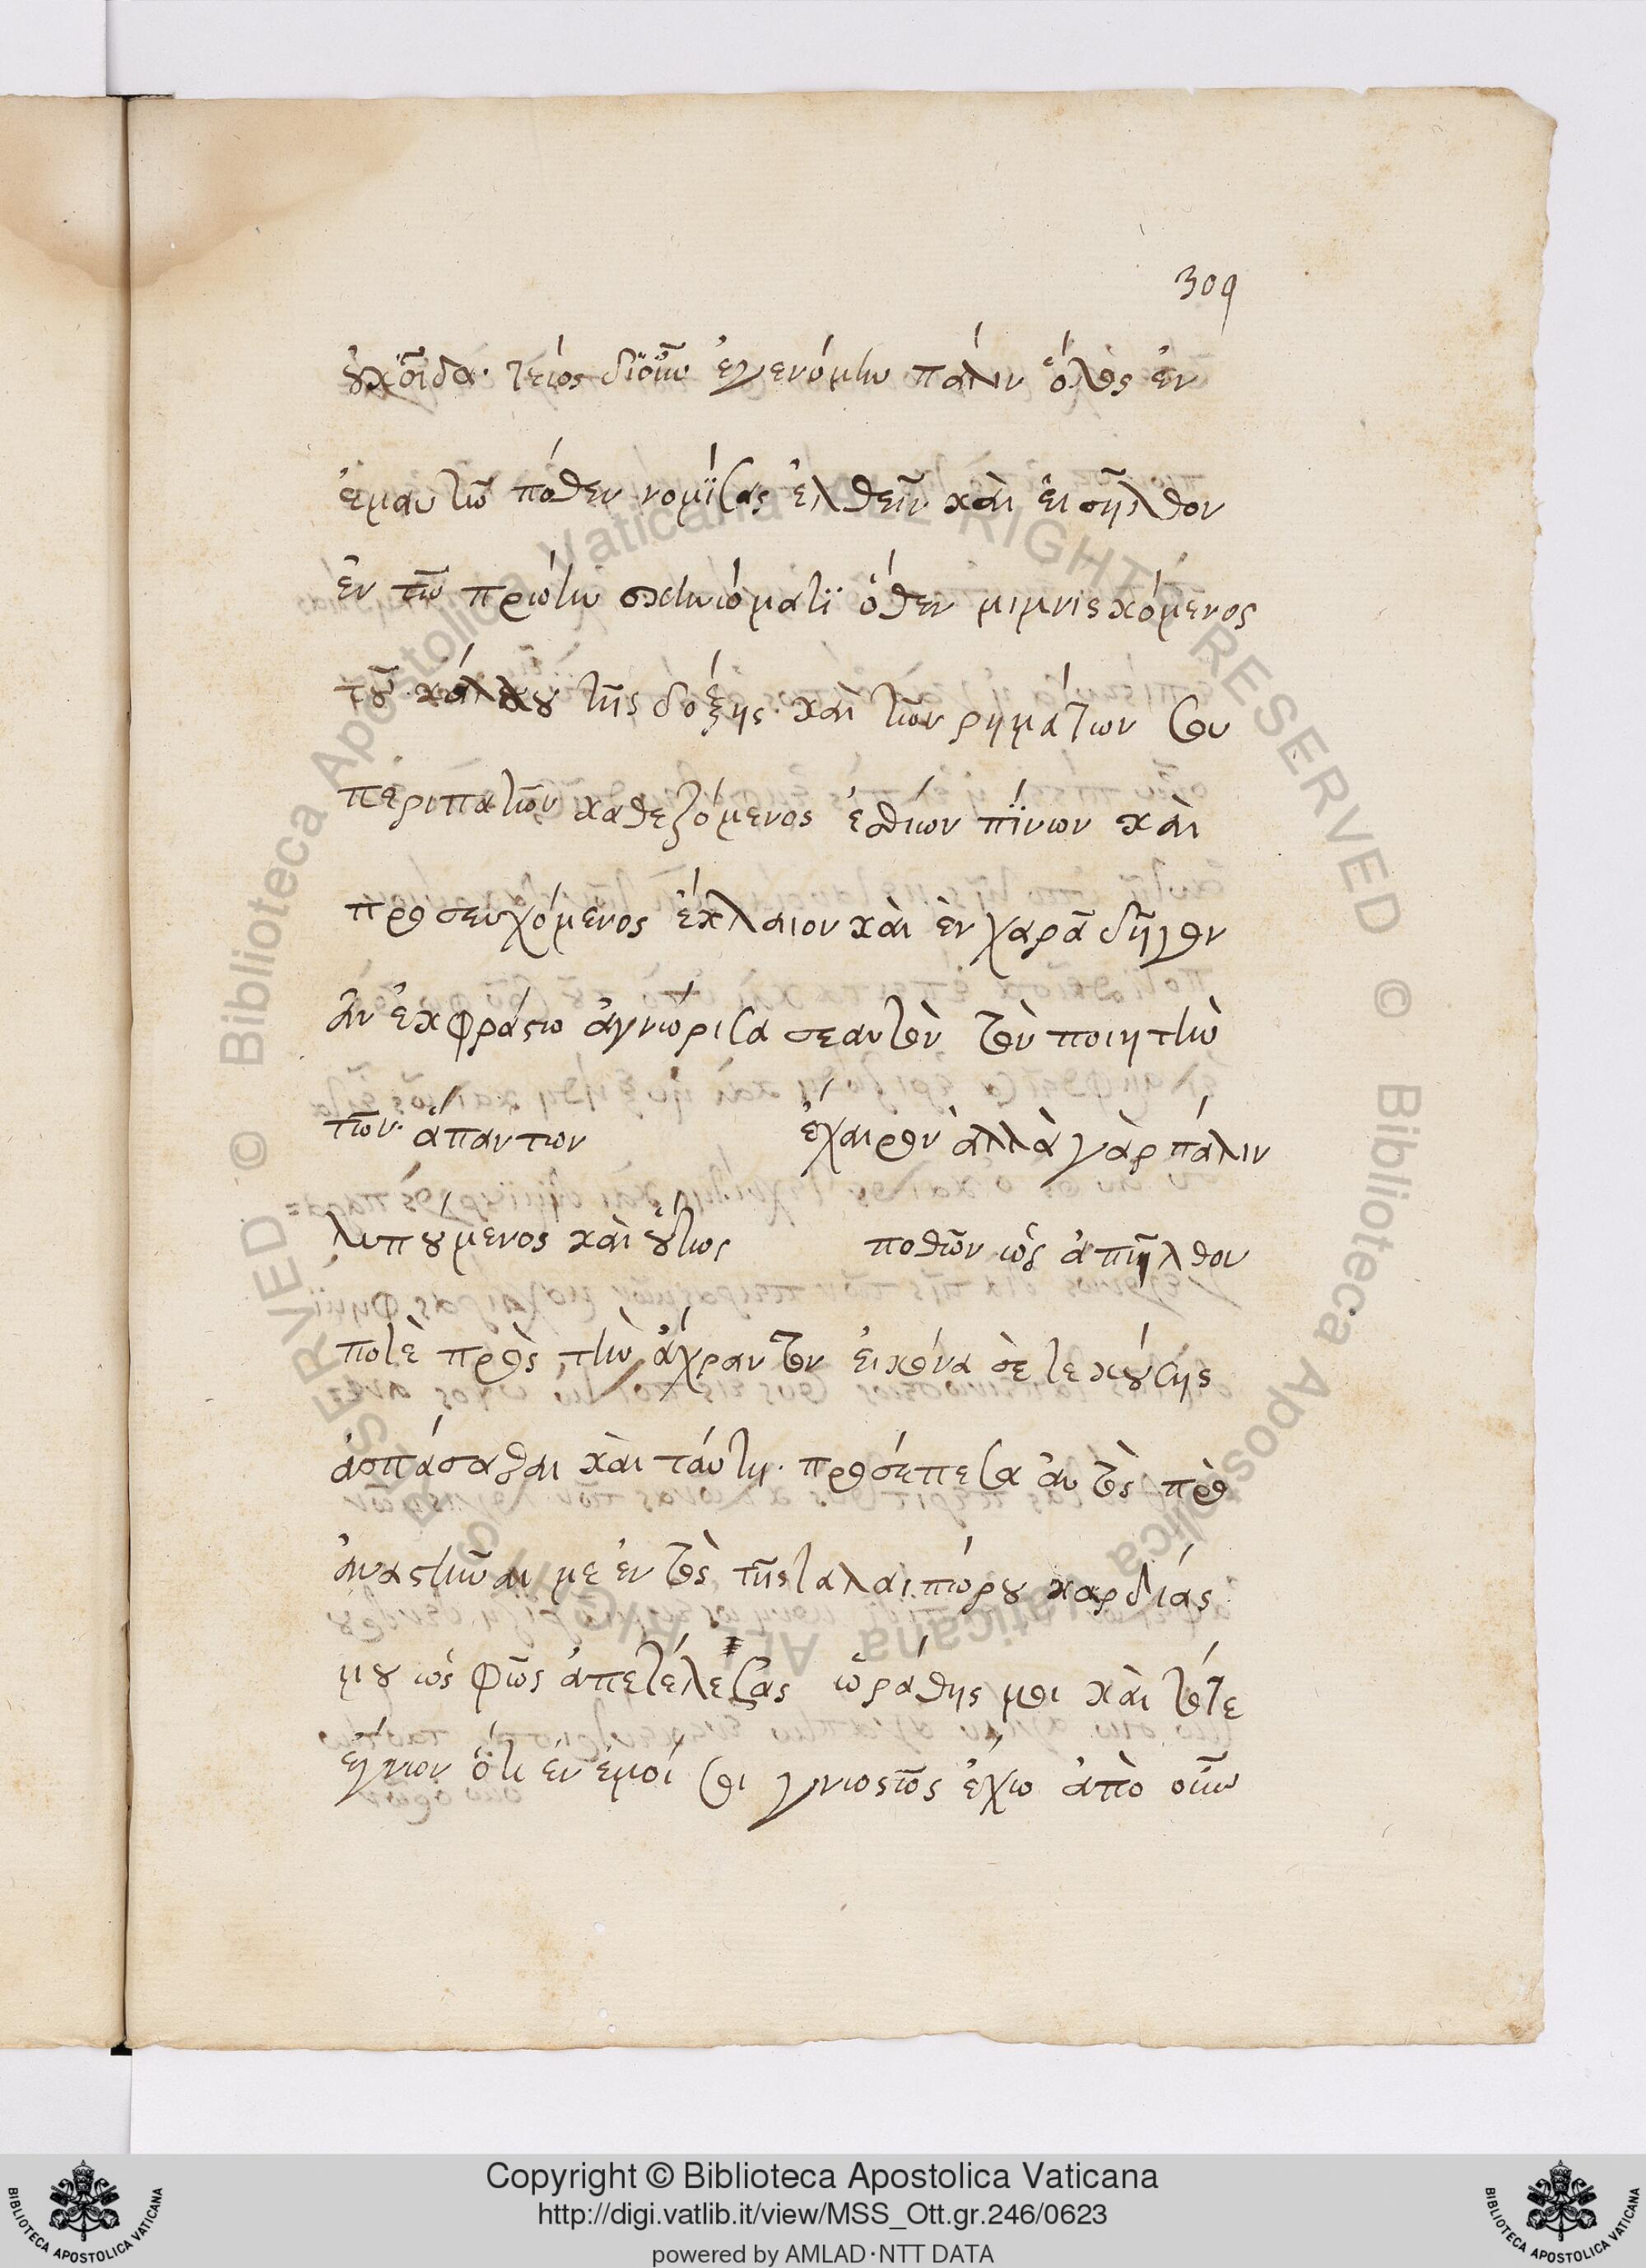 309
οὐχ οἶδα· τέως δϊοῦν ἐγενόμην πάλιν ὅλος ἐν
ἐμαυτῶ πόθεν νομΐσας ἐλθεῖν καὶ εἰσῆλθον
ἐν τῶ πρώτω σκηνώματϊ ὅθεν μιμνισκόμενος
τοῦ κάλλου τῆς δόξης· καὶ τῶν ρημάτων σου
περιπατῶν καθεζόμενος ἐσθίων πΐνων καὶ
προσευχόμενος ἔκλαιον καὶ ἐν χαρᾶ διῆγον
ἀνεκφράστω ἀγνώρισα σεαυτὸν τὸν ποιητὴν
τῶν· ἁπάντων ἔχαιρον ἀλλὰ γὰρ πάλιν
λυπούμενος καὶ οὕτως ποθῶν ὡς ἀπῆλθον
ποτὲ πρὸς τὴν ἄχραντον εἰκόνα σὲ τεκούσης
ἀσπάσασθαι καὶ ταύτη· προσέπεσα αὐτὸς πρὸ
ἀναστῆναι με ἐντὸς τῆς ταλαιπώρου καρδίας
μου ὡς φῶς ἀπετέλεσας ὡράθης μοι καὶ τότε
ἔγνων ὅτι ἐν ἐμοί σοι γνωστῶς ἔχω ἀπὸ οὖν
Copyright © Biblioteca Apostolica Vaticana
http://digi.vatlib.it/view/MSS_Ott.gr.246/0623
powered by AMLAD·NTT DATA
BIBLIOTECA APOSTOLICA VATICANA
BIBLIOTECA APOSTOLICA VATICANA
© Biblioteca Apostolica Vaticana ALL RIGHTS RESERVED
© Biblioteca Apostolica Vaticana ALL RIGHTS RESERVED